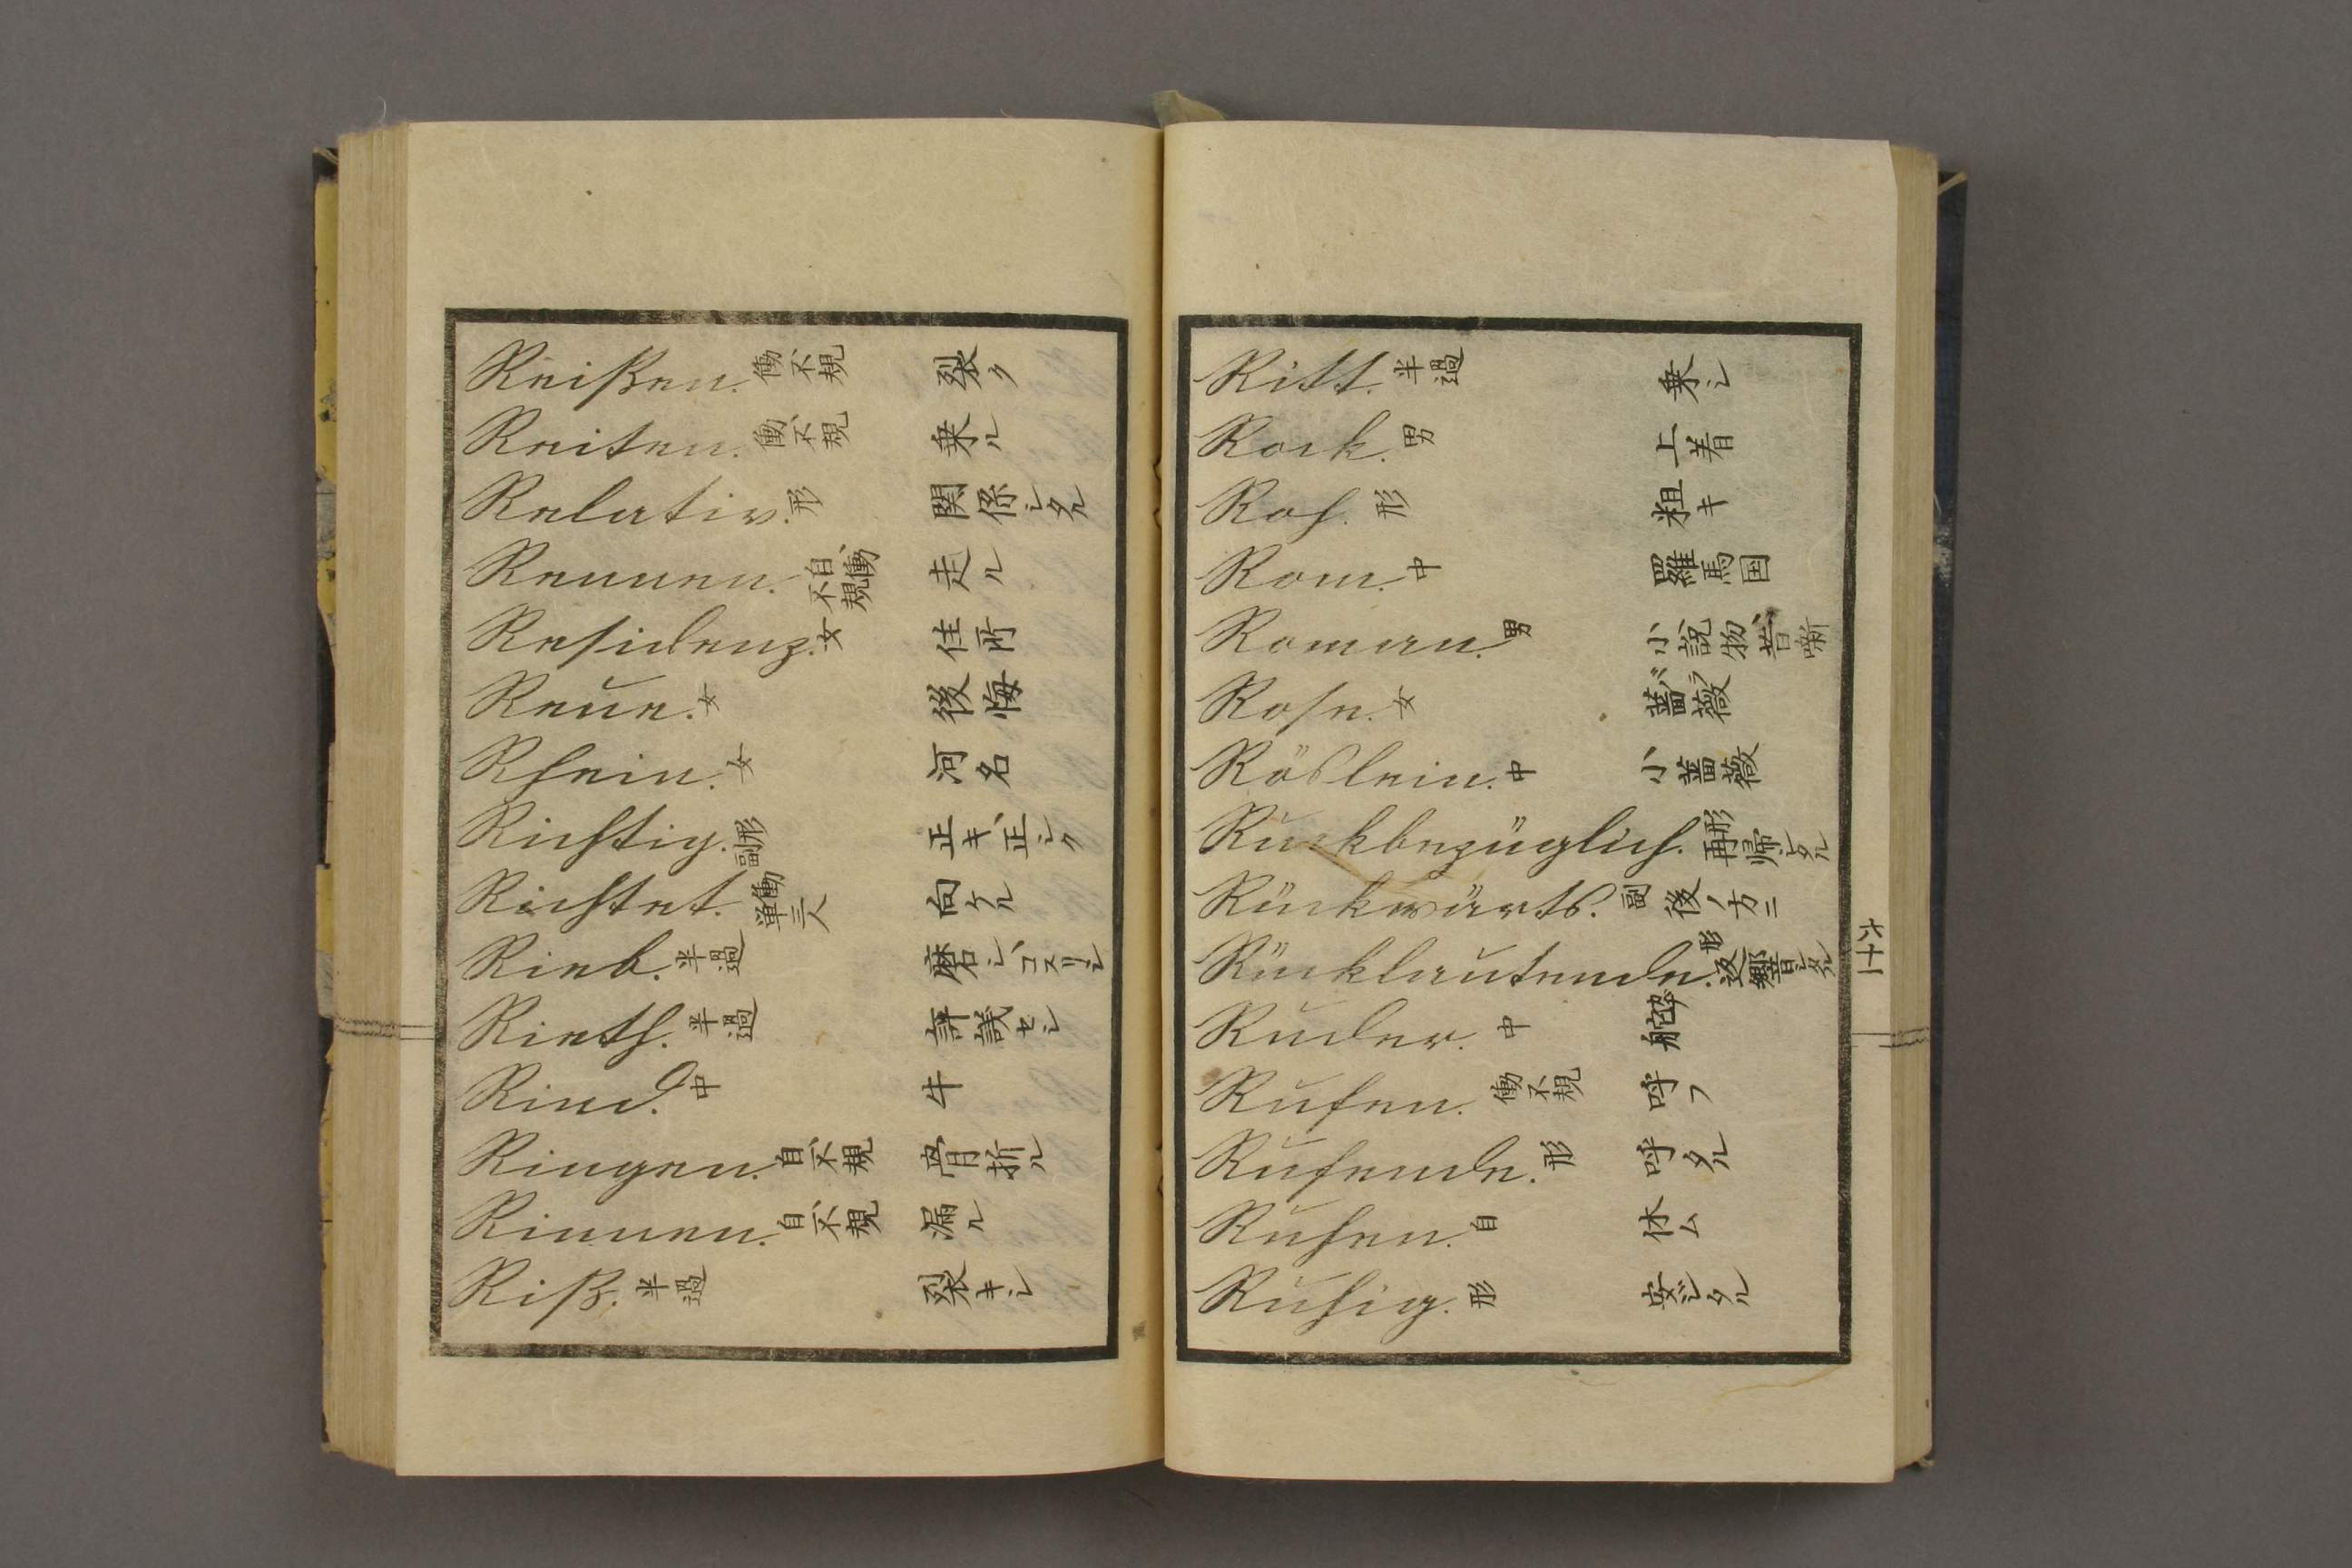 Reißen. 働、不規 裂ク
Reiten. 働、不規 乗ル
Relativ. 形 関係シタル
Rennen. 自働、不規 走ル
Residenz. 女 住所
Reue. 女 後悔
Rhein. 女 河名
Richtig. 形副 正キ、正シク
Richtet. 働単三人 向ケル
Rieb. 半過 磨シ、コスリシ
Rieth. 半過 評議セシ
Rind. 中 牛
Ringen. 自、不規 骨折ル
Rinnen. 自、不規 漏ル
Riß. 半過 裂キシ
Ritt. 半過 乗シ
Rock. 男 上着
Roh. 形 粗キ
Rom. 中 羅馬国
Roman. 男 小説物、昔噺
Rose. 女 薔薇
Röslein. 中 小薔薇
Rückbezüglich. 形 再帰シタル
Rückwärts. 副 後ノ方ニ
Rücklautende. 形 返響シタル
Ruder. 中
Rufen. 働、不規 呼フ
Rufende. 形 呼タル
Ruhen. 自 休ム
Ruhig. 形 安ジタル
六十一